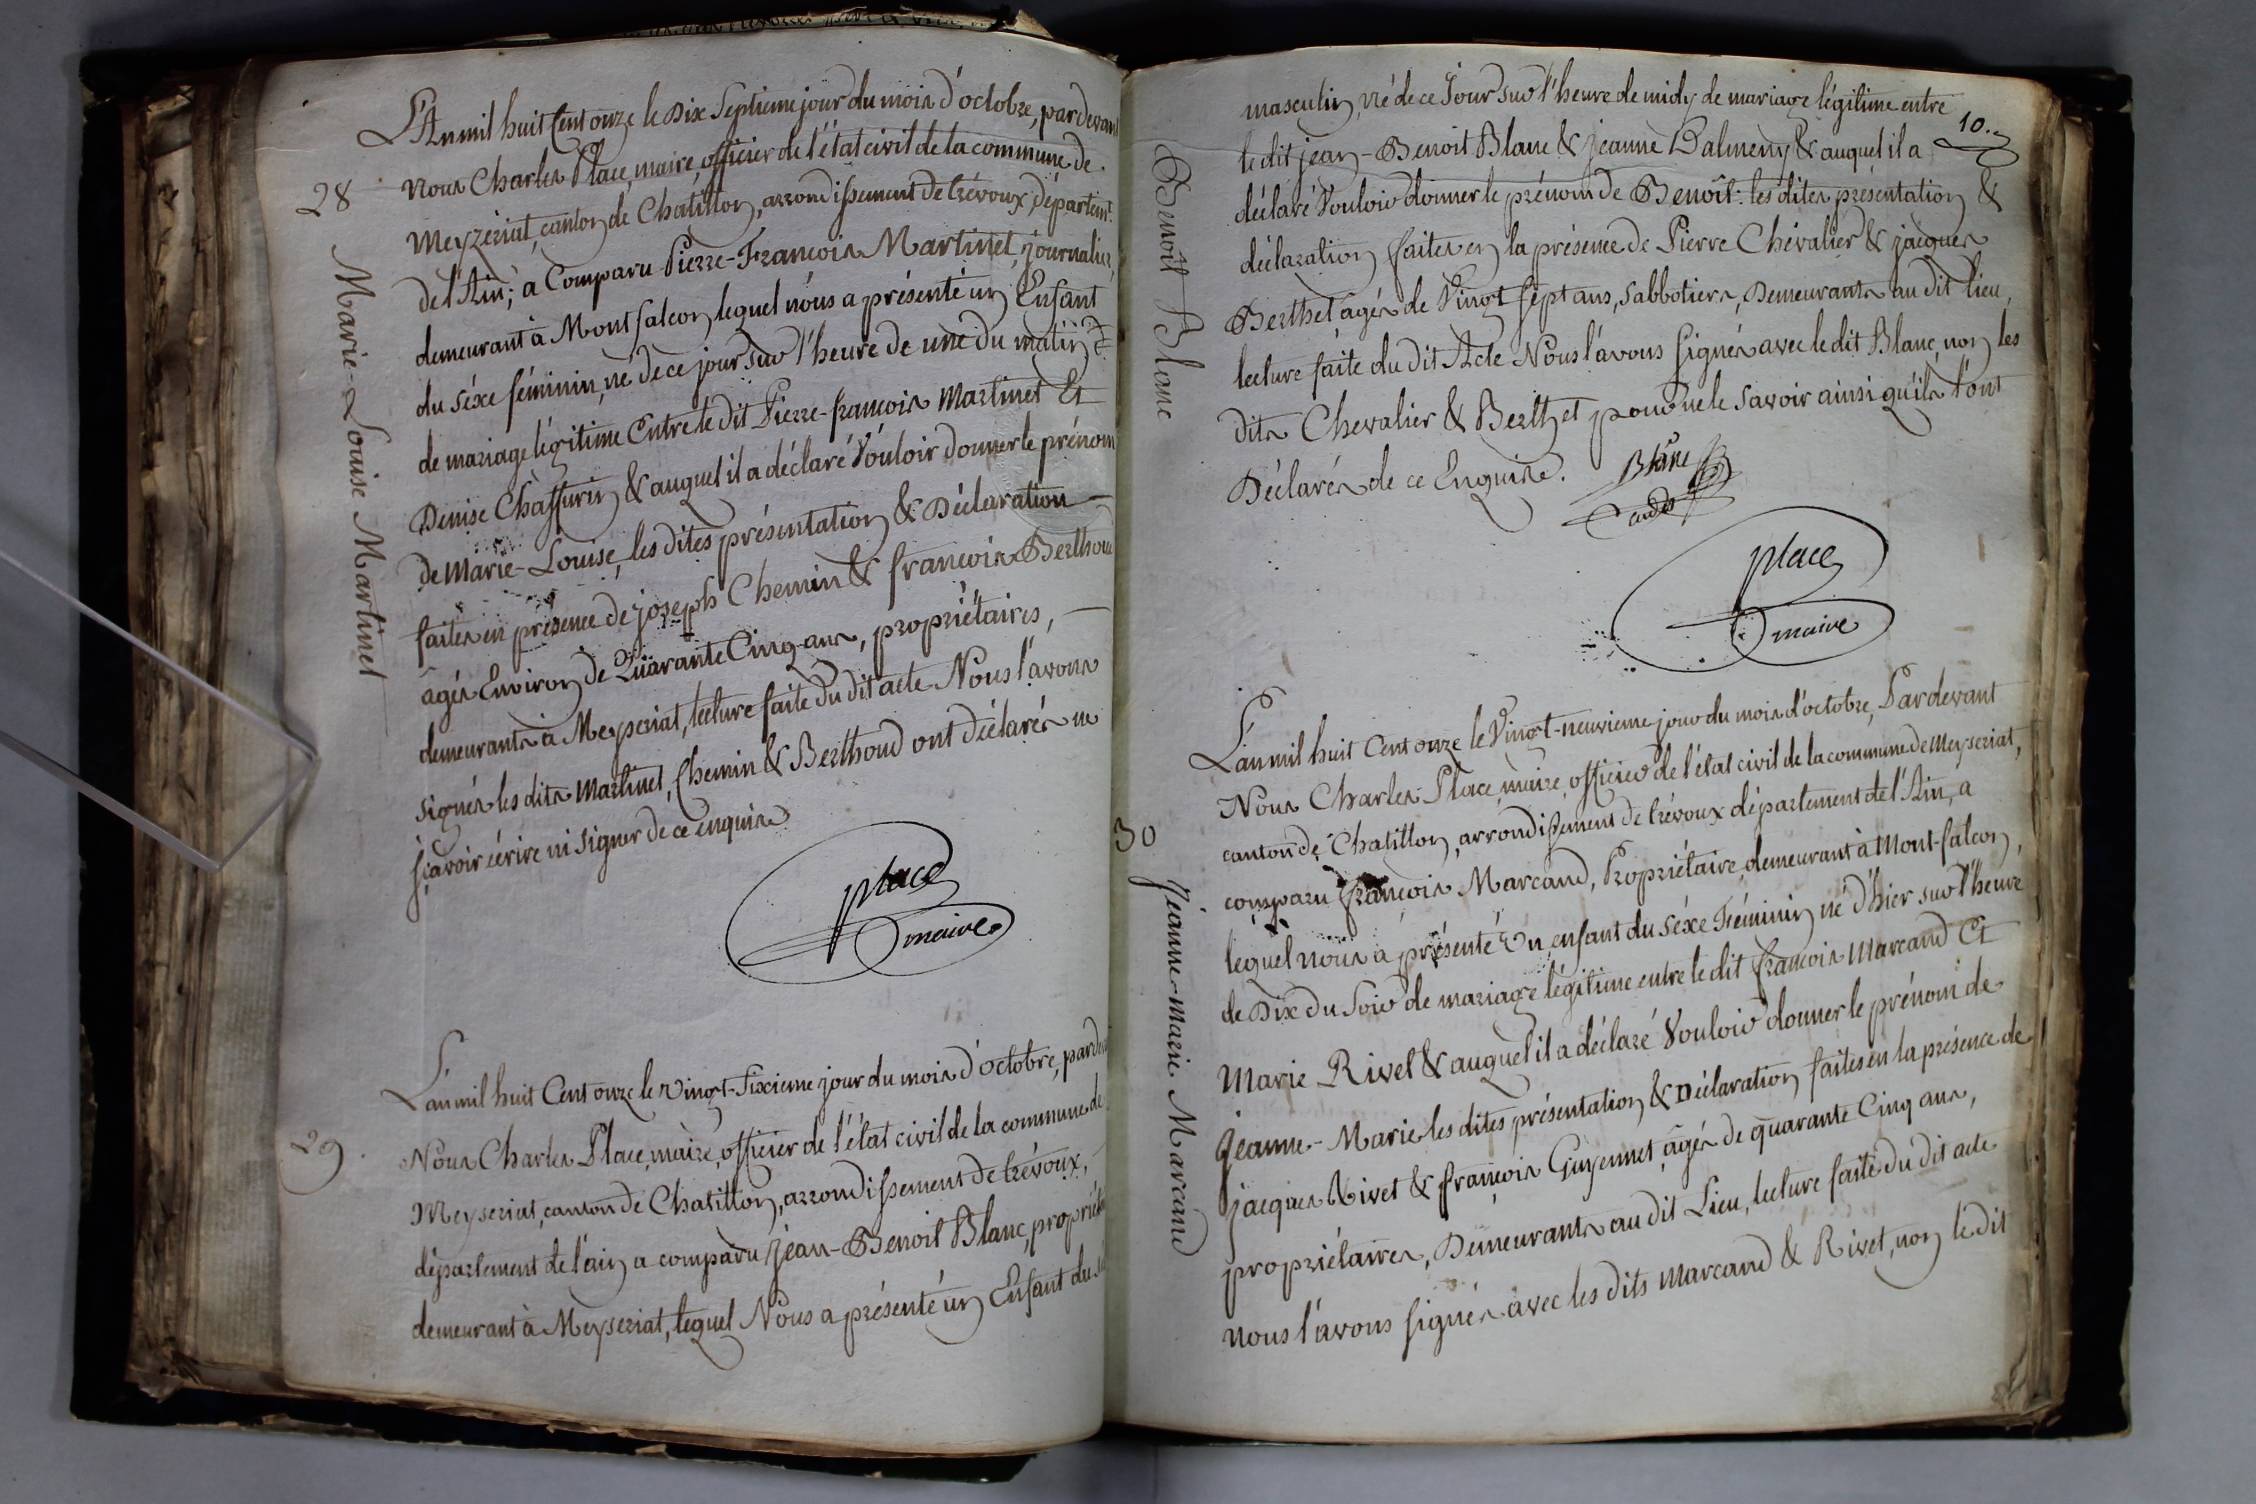 L'An mil huit Cent onze le Dix Septieme jour du mois d'octobre, pardevant
28
Nous Charles Place, maire, officier de l'état civil de la commune de
Meyzeriat, canton de Chatillon, arrondissement de trévoux, départemt.
de l'Ain; à Comparu Pierre-François Martinet, journalier,
demeurant à Montfalcon, lequel nous a présenté un Enfant
du séxe féminin, né de ce jour sur l'heure de une du matin &
de mariage légitime Entre le dit Pierre-françois Martinet Et
Denise Chaffurin & auquel il a déclaré Vouloir donner le prénom
de Marie-Louise, les dites présentation & Déclaration
faites en présence de joseph Chemin & françois Berthoud
âgés Environ de Quarante Cinq ans, propriétaires,
demeurants à Meyseriat, lecture faite du dit acte Nous l'avons
signés les dits Martinet, Chemin & Berthoud ont déclarés ne
sçavoir écrire ni signer de ce enquis
Marie-Louise Martinet
place
maire
L'an mil huit Cent onze le Vingt-Sixieme jour du mois d'octobre, pardevt
29.
Nous Charles Place, maire, officier de l'état civil de la commune de
Meyseriat, canton de Chatillon, arrondissement de trévoux,
département de l'ain a comparu jean-Benoit Blanc,
demeurant à Meyseriat, lequel Nous a présenté un Enfant du
masculin, né de ce Jour sur l'heure de midy de mariage légitime entre
10.
le dit jean-Benoit Blanc & jeanne Dalmeny & auquel il a
déclaré Vouloir donner le prénom de Benoît: les dites présentation &
déclaration faites en la présence de Pierre Chevalier & jacques
Berthet agés de Vingt sept ans, sabbotiers, Demeurants au dit lieu,
lecture faite du dit Acte Nous l'avons signés avec le dit Blanc, non les
dits Chevalier & Berthet pour ne le savoir ainsi qu'ils l'ont
Déclarés de ce Enquis.
Benoît Blanc
Blanc
place
maire
L'an mil huit Cent onze le Vingt-neuvieme jour du mois d'octobre, Pardevant
Nous Charles Place, maire, officier de l'état civil de la commune de Meyseriat,
30
canton de Chatillon, arrondissement de trévoux département de l'Ain, a
comparu françois Marcand, Propriétaire, demeurant à Mont-falcon,
lequel nous a présenté Un enfant du séxe Féminin né d'hier sur l'heure
de Dix du Soir de mariage légitime entre le dit françois Marcand Et
Marie Rivet & auquel il a déclaré Vouloir donner le prénom de
Jeanne-Marie les dites présentation & Déclaration faites en la présence de
jacques Rivet & françois Guyennet, âgés de quarante Cinq ans,
propriétaires, Demeurants au dit Lieu, lecture faite du dit acte
nous l'avons signés avec les dits Marcand & Rivet, non le dit
Jeanne-Marie Marcand